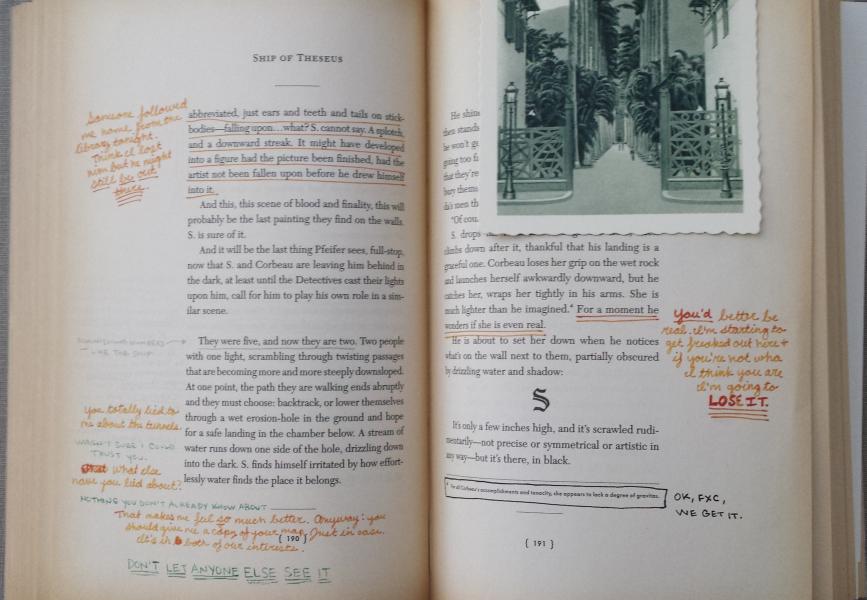 SHIP OF THESEUS
Someone followed
me home from the
library tonight.
Think I lost
him but he might
still be out
there.
abbreviated, just ears and teeth and tails on stick-
bodies—falling upon...what? S. cannot say. A splotch,
and a downward streak. It might have developed
into a figure had the picture been finished, had the
artist not been fallen upon before he drew himself
into it.
And this, this scene of blood and finality, this will
probably be the last painting they find on the walls.
S. is sure of it.
And it will be the last thing Pfeifer sees, full-stop,
now that S. and Corbeau are leaving him behind in
the dark, at least until the Detectives cast their lights
upon him, call for him to play his own role in a sim-
ilar scene.
NUMBERS
LIKE THE SHIP
They were five, and now they are two. Two people
with one light, scrambling through twisting passages
that are becoming more and more steeply downsloped.
At one point, the path they are walking ends abruptly
and they must choose: backtrack, or lower themselves
through a wet erosion-hole in the ground and hope
for a safe landing in the chamber below. A stream of
water runs down one side of the hole, drizzling down
into the dark. S. finds himself irritated by how effort-
lessly water finds the place it belongs.
you totally lied to
me about the tunnels.
WASN'T SURE I COULD
TRUST YOU.
What else
have you lied about?
NOTHING YOU DON'T ALREADY KNOW ABOUT
That makes me feel so much better. Anyway: you
should give me a copy of your map. Just in case.
It's in both of our interests.
{ 190 }
DON'T LET ANYONE ELSE SEE IT
He shin
then stands
he won't ge
going too f
that they're
bury thems
da's men th
"Of cou
S. drops
climbs down after it, thankful that his landing is a
graceful one. Corbeau loses her grip on the wet rock
and launches herself awkwardly downward, but he
catches her, wraps her tightly in his arms. She is
much lighter than he imagined.⁴ For a moment he
wonders if she is even real.
He is about to set her down when he notices
what's on the wall next to them, partially obscured
by drizzling water and shadow:
S
It's only a few inches high, and it's scrawled rudi-
mentarily—not precise or symmetrical or artistic in
any way—but it's there, in black.
You'd better be
real. I'm starting to
get freaked out here +
if you're not who
I think you are
I'm going to
LOSE IT.
⁴ For all Corbeau's accomplishments and tenacity, she appears to lack a degree of gravitas.
OK, FXC,
WE GET IT.
{ 191 }